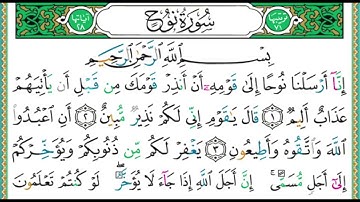 ترتيبها ٧١ سُورَةُ نُوحٍ آياتها ٢٨
بِسْمِ ٱللَّهِ ٱلرَّحْمَٰنِ ٱلرَّحِيمِ
إِنَّآ أَرْسَلْنَا نُوحًا إِلَىٰ قَوْمِهِۦٓ أَنْ أَنذِرْ قَوْمَكَ مِن قَبْلِ أَن يَأْتِيَهُمْ
عَذَابٌ أَلِيمٌ ۝١ قَالَ يَٰقَوْمِ إِنِّى لَكُمْ نَذِيرٌ مُّبِينٌ ۝٢ أَنِ ٱعْبُدُوا۟
ٱللَّهَ وَٱتَّقُوهُ وَأَطِيعُونِ ۝٣ يَغْفِرْ لَكُم مِّن ذُنُوبِكُمْ وَيُؤَخِّرْكُمْ
إِلَىٰٓ أَجَلٍ مُّسَمًّى ۚ إِنَّ أَجَلَ ٱللَّهِ إِذَا جَآءَ لَا يُؤَخَّرُ ۖ لَوْ كُنتُمْ تَعْلَمُونَ